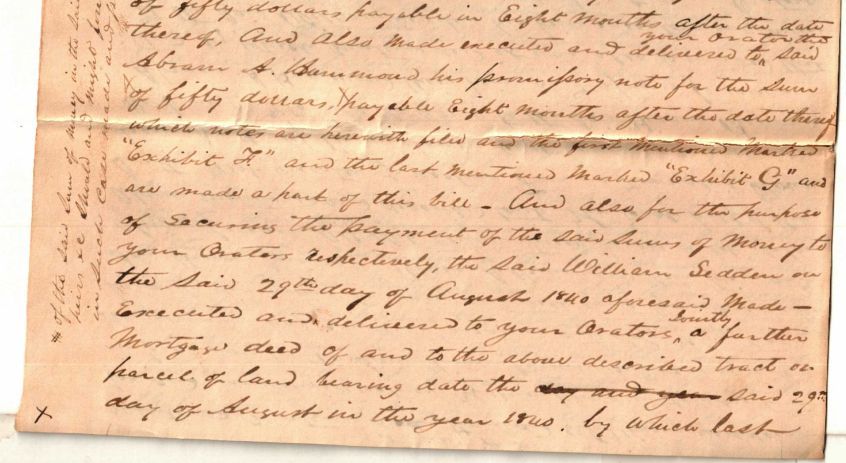 of fifty dollars payable in Eight Months after the date
thereof, And also made executed and delivered to your Orator the said
Abram A. Hammond his promissory note for the Sum
of fifty dollars, payable Eight Months after the date thereof
which notes are herewith filed and the first mentioned Marked
"Exhibit F." and the last mentioned Marked "Exhibit G" and
are made a part of this bill - And also for the purpose
of Securing the payment of the said Sums of Money to
your Orators respectively, the said William Sedden on
the said 29th day of August 1840 aforesaid Made -
Executed and delivered to your Orators, Jointly a further
Mortgage deed of and to the above described tract or
parcel of land bearing date the day and year said 29th
day of August in the year 1840. by which last
* of the said Sum of money in the
heirs &c should and might
in such case made and
x